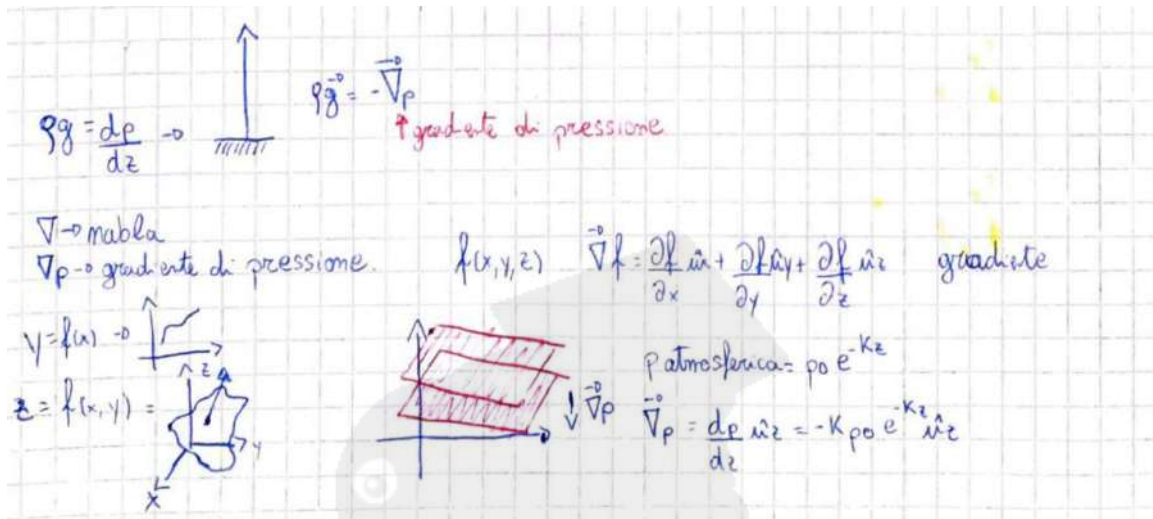 ρg = dp/dz →
ρg⃗ = -∇⃗p
↑ gradiente di pressione
∇ → nabla
∇p → gradiente di pressione.
f(x,y,z) ∇⃗f = ∂f/∂x ûx + ∂f/∂y ûy + ∂f/∂z ûz gradiente
y = f(x) →
z = f(x,y) =
z
y
x
↓ ∇⃗p
p atmosferica = p0 e^-Kz
∇⃗p = dp/dz ûz = -K p0 e^-Kz ûz